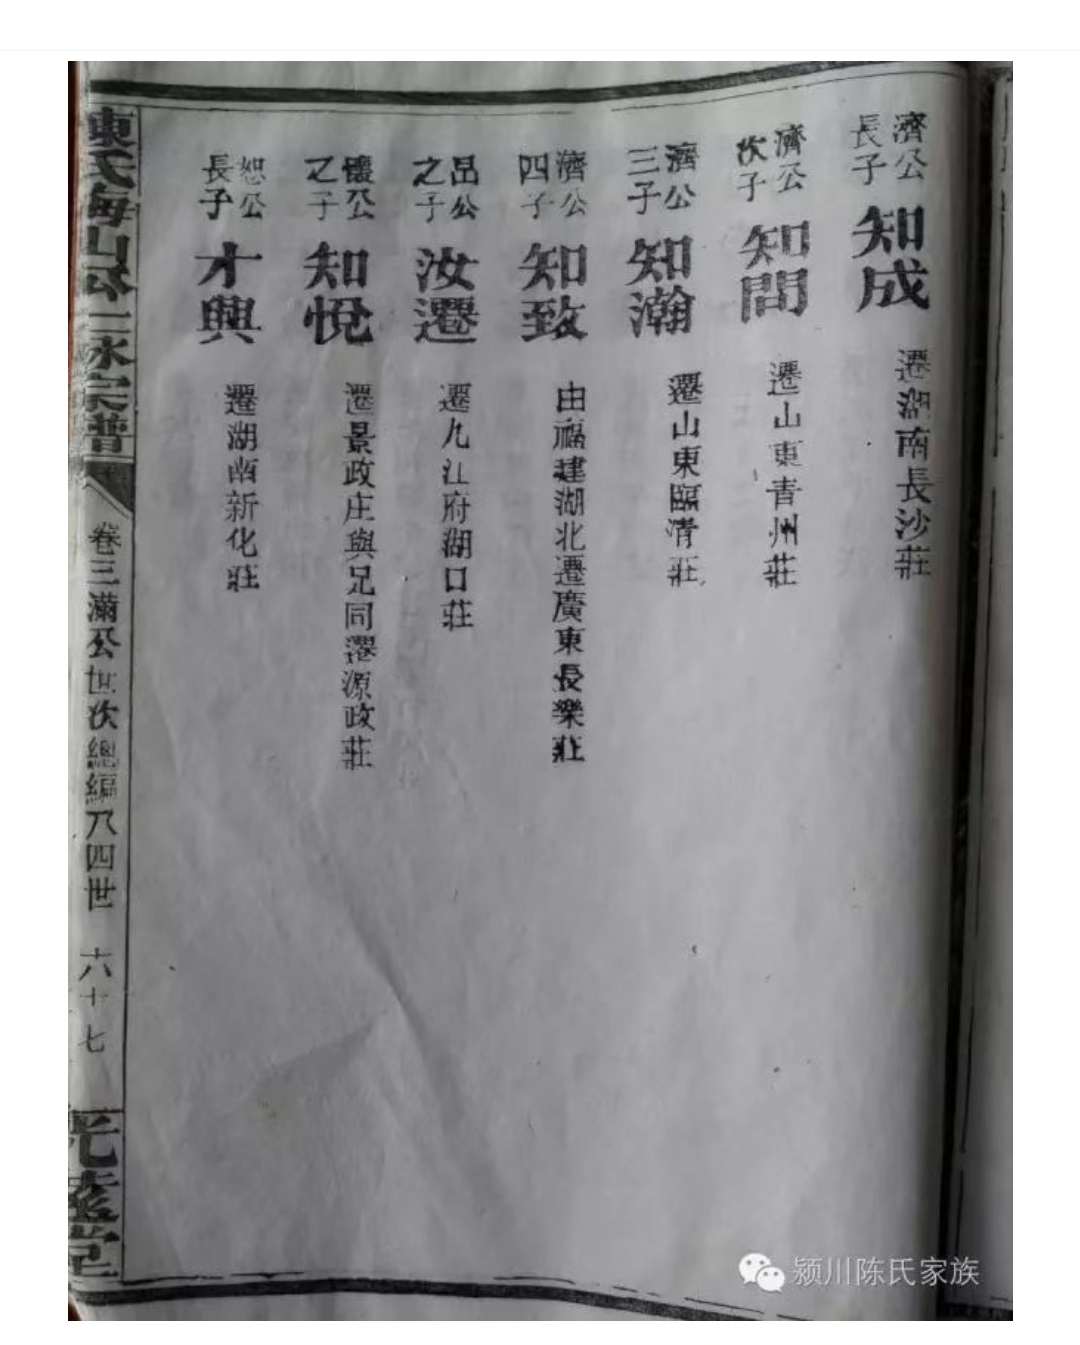 濟公長子
知成
遷湖南長沙莊
濟公次子
知問
遷山東青州莊
濟公三子
知瀚
遷山東臨清莊
濟公四子
知致
由福建湖北遷廣東長樂莊
昷公之子
汝遷
遷九江府湖口莊
懷公之子
知悅
遷景政庄與兄同遷源政莊
恕公長子
才興
遷湖南新化莊
陳氏海山公一脉宗譜
卷三滿公世次總編八四世
六十七
堂
颍川陈氏家族